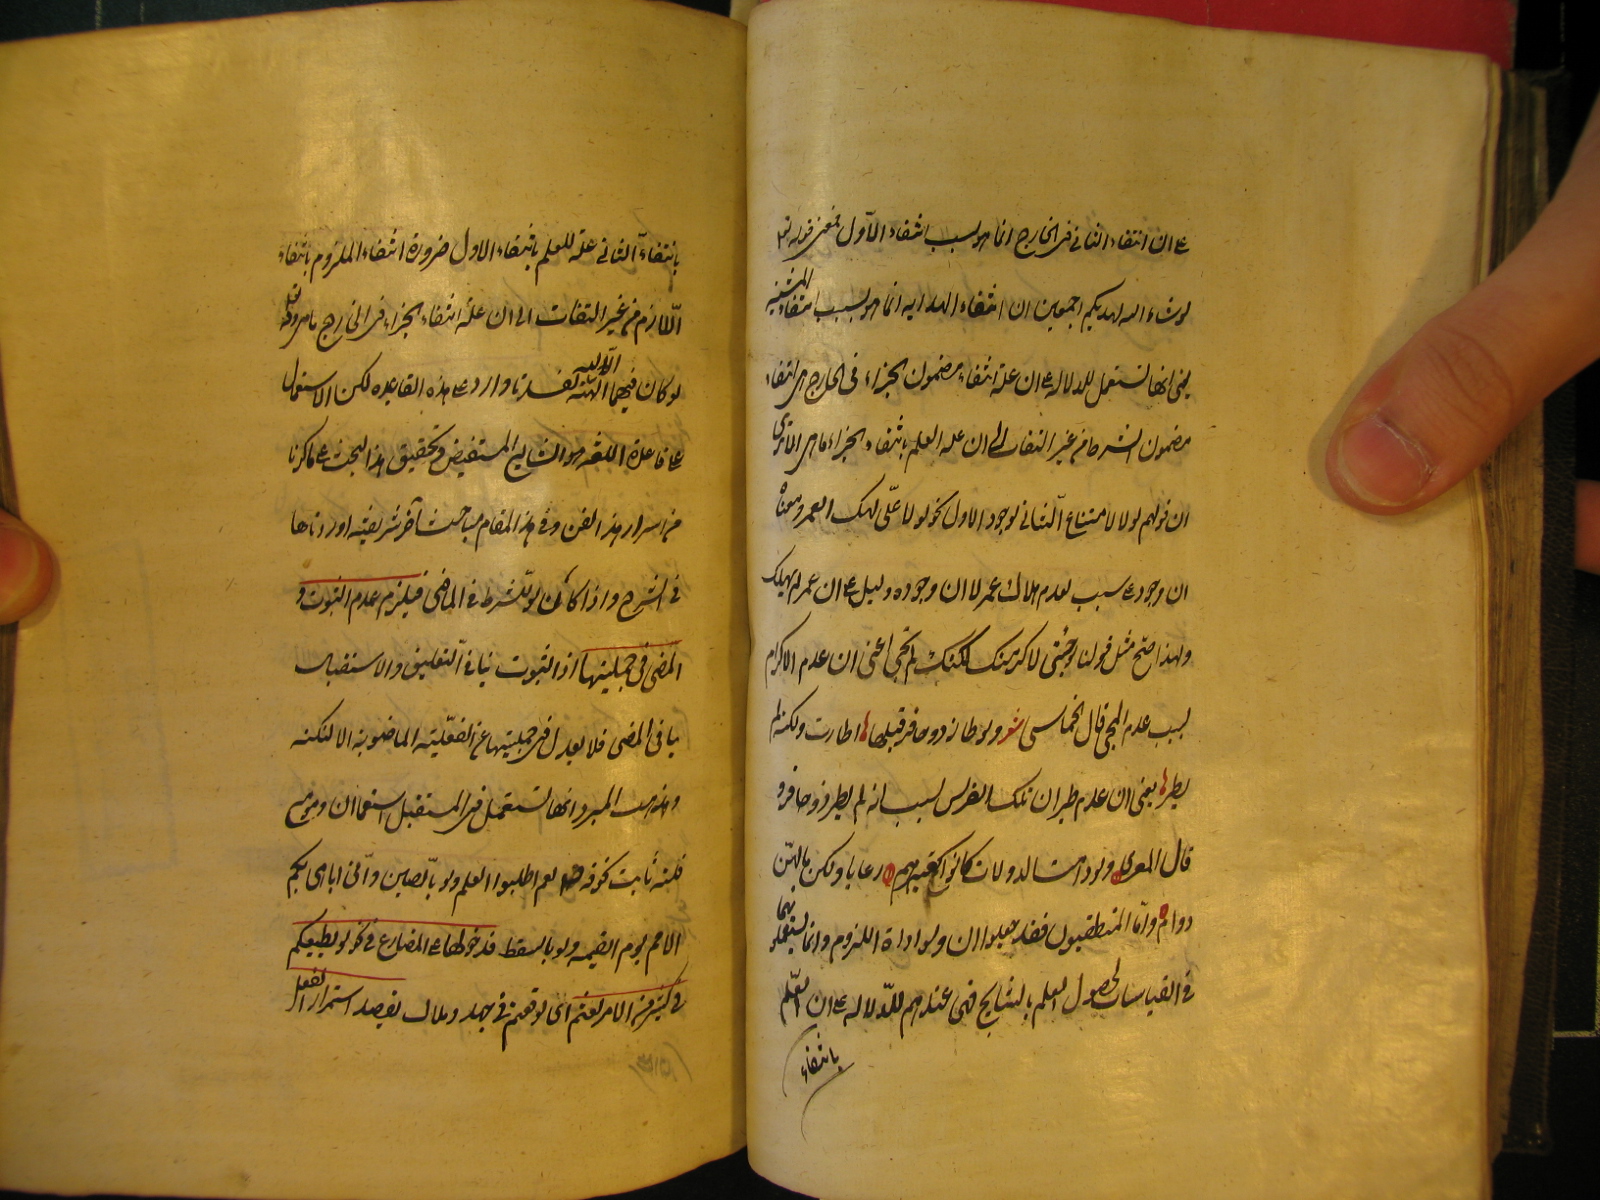 على ان انتفاء الثانى فى الخارج انما هو بسبب انتفاء الاول فمعنى قوله تعالى
لو شاء الله لهديكم اجمعين ان انتفاء الهداية انما هو بسبب انتفاء المشية
يعنى انها تستعمل للدلالة على ان علة انتفاء مضمون الجزاء فى الخارج هى انتفاء
مضمون الشرط من غير التفات الى ان علة العلم بانتفاء الجزاء ما هى الا ترى
ان قولهم لولا لامتناع الثانى لوجود الاول نحو لولا على لهلك العمر معناه
ان وجود على سبب لعدم هلاك عمر لا ان وجوده دليل على ان عمر لم يهلك
ولهذا صح مثل قولنا لو جئتنى لاكرمتك لكنك لم تجئ اعنى ان عدم الاكرام
بسبب عدم المجئ قال الحماسى شعر ولو طار ذو حافر قبلها لطارت ولكنه لم
يطر يعنى ان عدم طيران تلك الفرس بسبب انه لم يطر ذو حافر و
قال المعرى ولو دامت الدولات كانوا كغيرهم رعايا ولكن ما لهن
دوام واما المنطقيون فقد جعلوا ان ولو اداة اللزوم وانما يستعملونهما
فى القياسات لحصول العلم بالنتايج فهى عندهم للدلالة على ان العلم
بانتفاء
بانتفاء الثانى علة للعلم بانتفاء الاول ضرورة انتفاء الملزوم بانتفاء
اللازم من غير التفات الى ان علة انتفاء الجزاء فى الخارج ما هى وقوله تعالى
لو كان فيهما الهة الا الله لفسدتا وارد على هذه القاعدة لكن الاستعمال
على قاعدة اللغة هو الشايع المستفيض وتحقيق هذا البحث على ما ذكرنا
من اسرار هذا الفن وفى هذا المقام مباحث اخر شريفة اوردناها
فى الشرح واذا كان لو للشرط فى الماضى فيلزم عدم الثبوت و
المضى فى جملتيها اذ الثبوت ينافى التعليق والاستقبال
ينافى المضى فلا يعدل فى جملتيها عن الفعلية الماضوية الا لنكتة
ومذهب المبرد انها تستعمل فى المستقبل استعمال ان وهو مع
قلته ثابت نحو قوله عم اطلبوا العلم ولو بالصين وانى اباهى بكم
الامم يوم القيمة ولو بالسقط فدخولها على المضارع فى نحو لو يطيعكم
فى كثير من الامر لعنتم اى لوقعتم فى جهد وهلاك لقصد استمرار الفعل